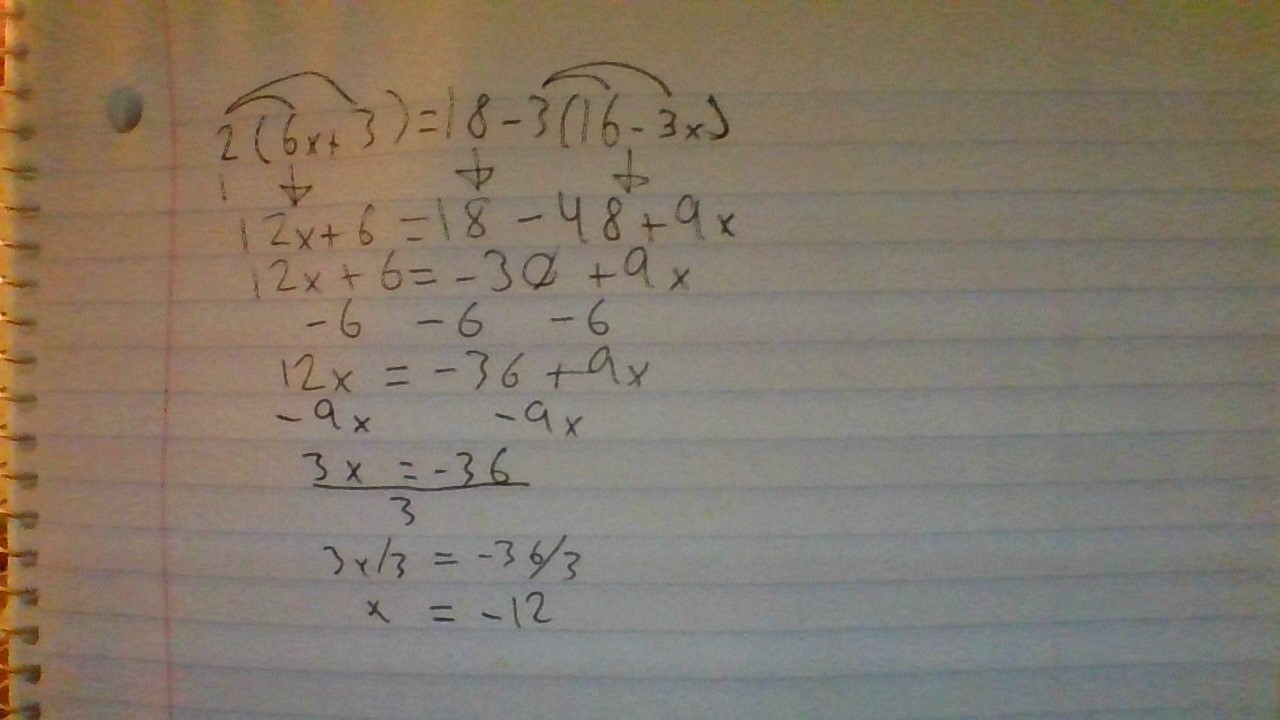 2(6x+3)=18-3(16-3x)
12x+6=18-48+9x
12x+6=-30+9x
-6 -6 -6
12x=-36+9x
-9x -9x
3x=-36
3
3x/3=-36/3
x=-12